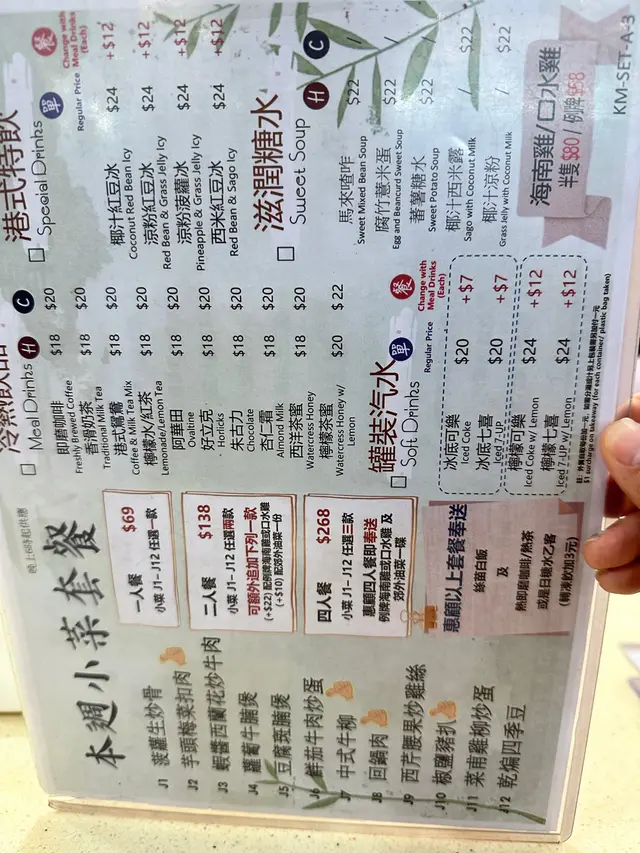 本週小菜套餐
晚上6時起供應
J1 菠蘿生炒骨
J2 芋頭梅菜扣肉
J3 蝦醬西蘭花炒牛肉
J4 蘿蔔牛腩煲
J5 豆腐斑腩煲
J6 鮮茄牛肉炒蛋
J7 中式牛柳
J8 回鍋肉
J9 西芹腰果炒雞絲
J10 椒鹽豬扒
J11 菜甫雞柳炒蛋
J12 乾煸四季豆
一人餐 $69
小菜 J1-J12 任選一款
二人餐 $138
小菜 J1-J12 任選兩款
可額外追加下列一款
(+$22) 配例牌海南雞或口水雞
(+$10) 配郊外油菜一份
四人餐 $268
小菜 J1-J12 任選三款
惠顧四人餐即奉送
例牌海南雞或口水雞 及
郊外油菜一碟
惠顧以上套餐奉送
絲苗白飯
及
熱即磨咖啡/熱茶
或是日辣水乙客
(稀凍飲加3元)
冷熱飲品
Meal Drinks H C
即磨咖啡 $18 $20
Freshly Brewed Coffee
香滑奶茶 $18 $20
Traditional Milk Tea
港式鴛鴦 $18 $20
Coffee & Milk Tea Mix
檸檬水/紅茶 $18 $20
Lemonade/Lemon Tea
阿華田 $18 $20
Ovaltine
好立克 $18 $20
Horlicks
朱古力 $18 $20
Chocolate
杏仁霜 $18 $20
Almond Milk
西洋菜蜜 $18 $20
Watercress Honey
檸檬菜蜜 $20 $ 22
Watercress Honey w/
Lemon
罐裝汽水
Soft Drinks
單 餐
Regular Price
Change with
Meal Drinks
(Each)
冰底可樂 $20 +$7
Iced Coke
冰底七喜 $20 +$7
Iced 7-UP
檸檬可樂 $24 +$12
Iced Coke w/ Lemon
檸檬七喜 $24 +$12
Iced 7-UP w/ Lemon
$1 surcharge on takeaway (for each container/ plastic bag taken)
港式特飲
Special Drinks
單 餐
Regular Price
Change with
Meal Drinks
(Each)
椰汁紅豆冰 $24 +$12
Coconut Red Bean Icy
涼粉紅豆冰 $24 +$12
Red Bean & Grass Jelly Icy
涼粉菠蘿冰 $24 +$12
Pineapple & Grass Jelly Icy
西米紅豆冰 $24 +$12
Red Bean & Sago Icy
滋潤糖水
Sweet Soup H C
馬來喳咋 $22
Sweet Mixed Bean Soup
腐竹薏米蛋 $22 /
Egg and Beancurd Sweet Soup
蕃薯糖水 $22 /
Sweet Potato Soup
椰汁西米露 / $22
Sago with Coconut Milk
椰汁涼粉 / $22
Grass Jelly with Coconut Milk
海南雞/口水雞
半隻 $80 / 例牌 $58
KM-SET-A-3